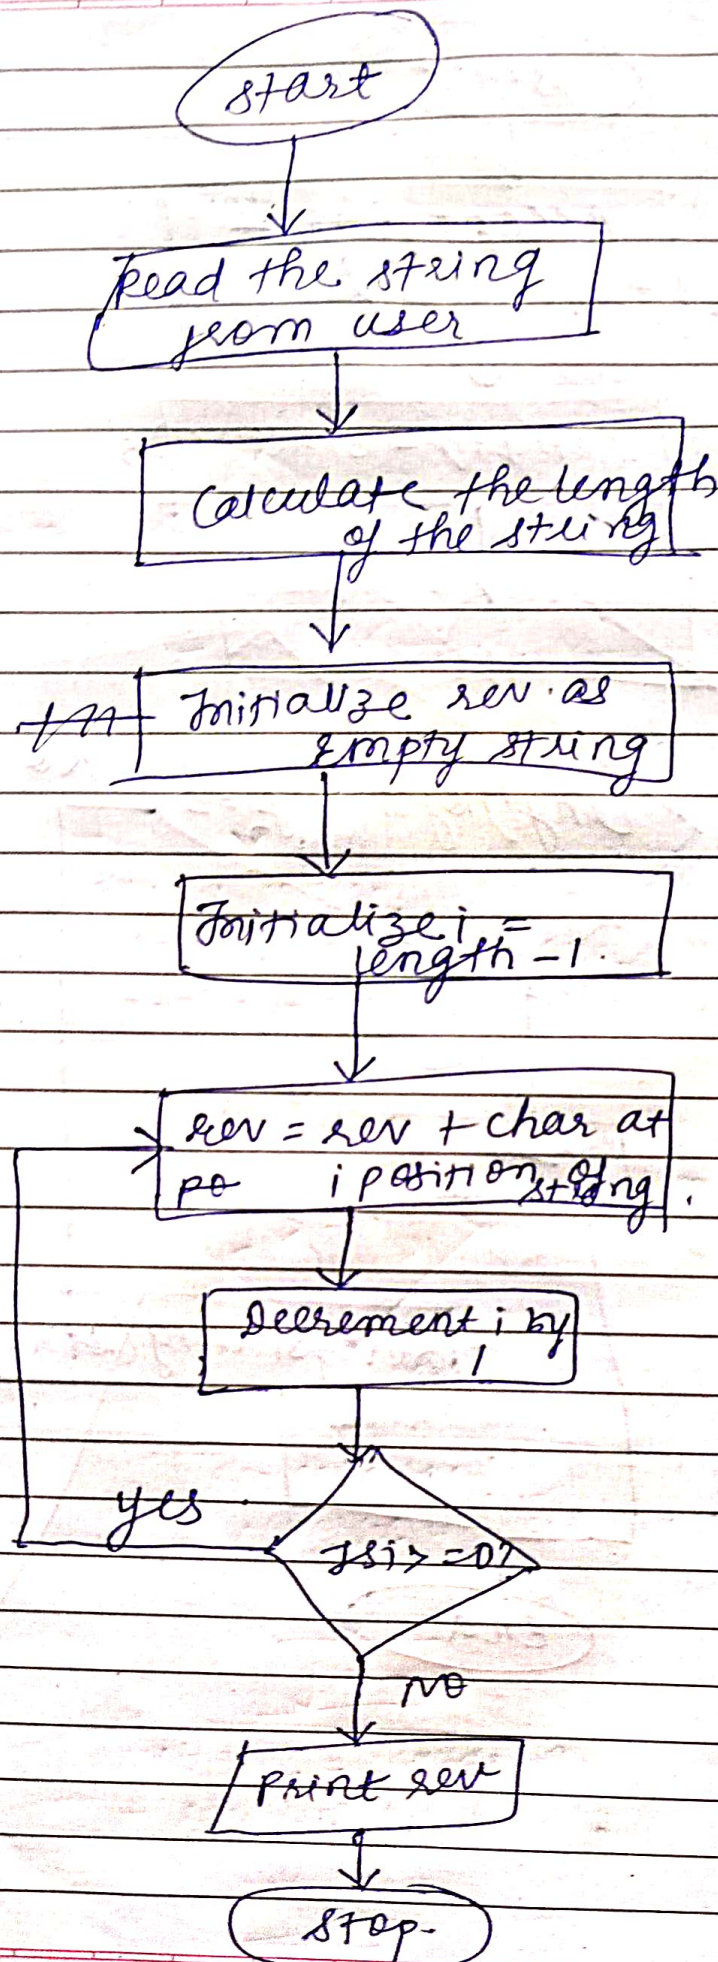 start
Read the string
from user
Calculate the length
of the string
Initialize rev. as
Empty string
Initialize i =
length - 1.
rev = rev + char at
po i position of
string.
Decrement i by
1
yes
Is i > = 0?
NO
Print rev
stop.